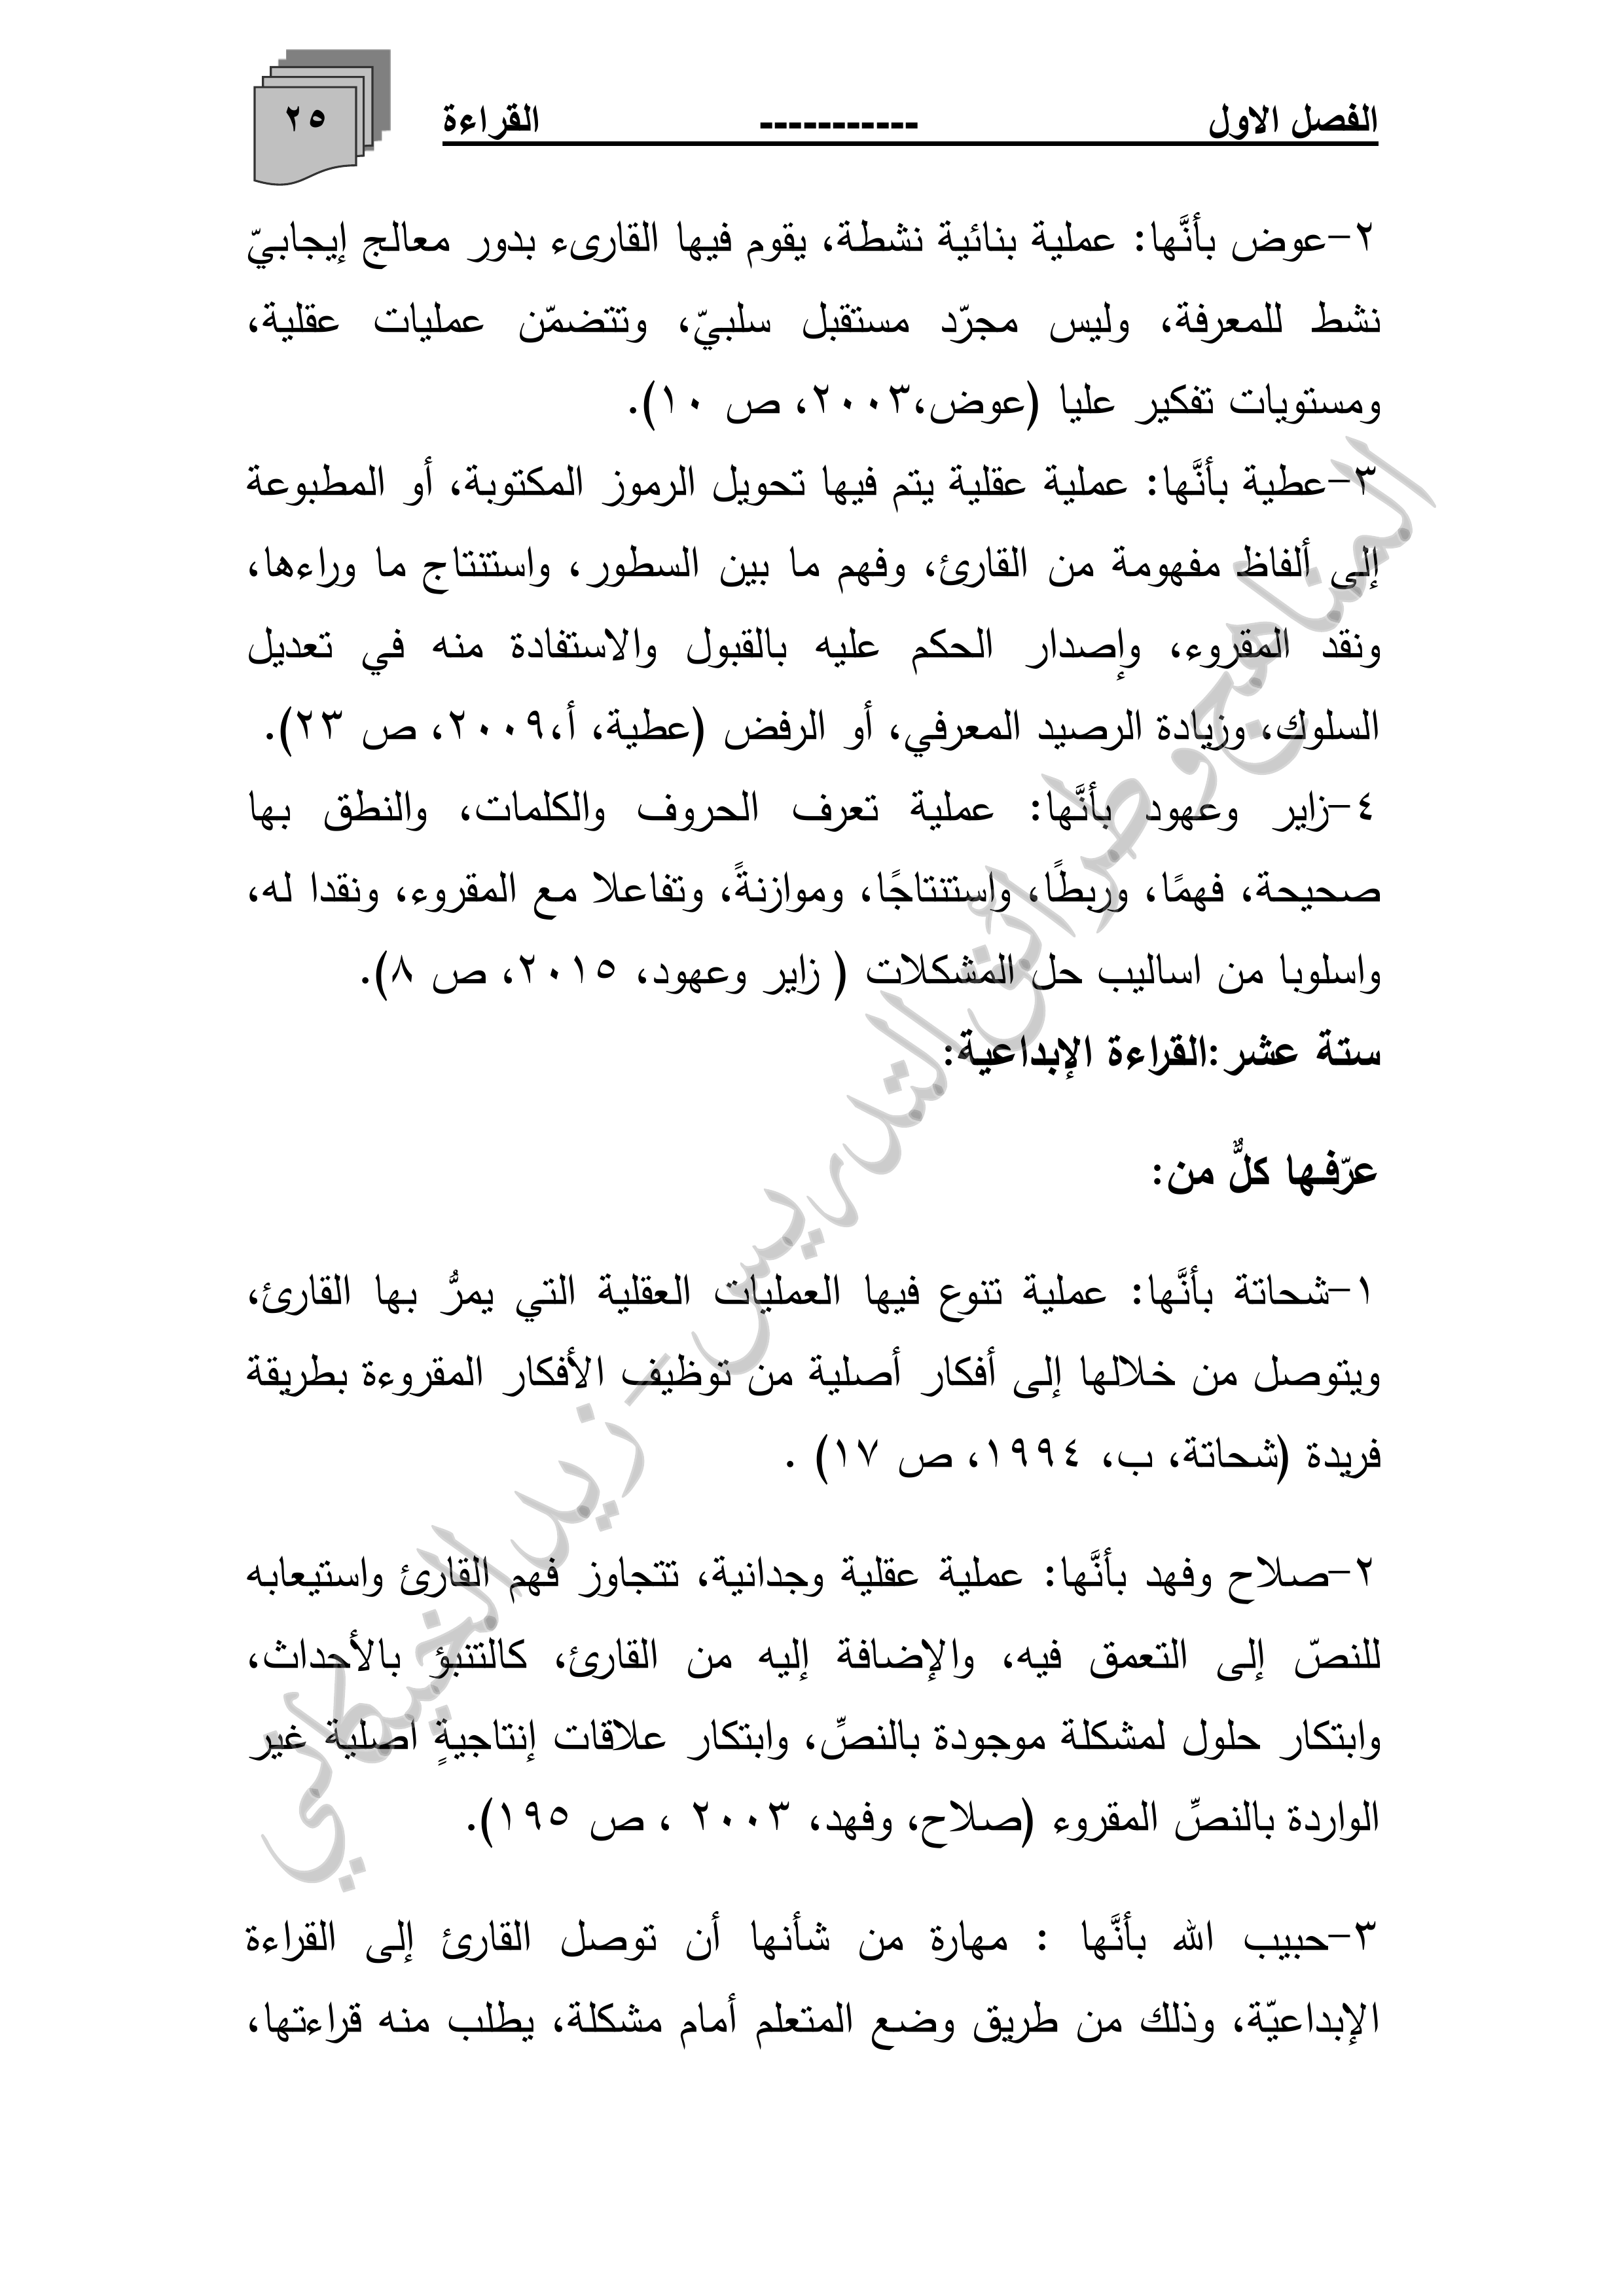 الفصل الاول ----------- القراءة
٢٥
٢-عوض بأنَّها: عملية بنائية نشطة، يقوم فيها القارىء بدور معالج إيجابيّ
نشط للمعرفة، وليس مجرّد مستقبل سلبيّ، وتتضمّن عمليات عقلية،
ومستويات تفكير عليا (عوض،٢٠٠٣، ص ١٠).
٣-عطية بأنَّها: عملية عقلية يتم فيها تحويل الرموز المكتوبة، أو المطبوعة
إلى ألفاظ مفهومة من القارئ، وفهم ما بين السطور، واستنتاج ما وراءها،
ونقد المقروء، وإصدار الحكم عليه بالقبول والاستفادة منه في تعديل
السلوك، وزيادة الرصيد المعرفي، أو الرفض (عطية، أ،٢٠٠٩، ص ٢٣).
٤-زاير وعهود بأنَّها: عملية تعرف الحروف والكلمات، والنطق بها
صحيحة، فهمًا، وربطًا، واستنتاجًا، وموازنةً، وتفاعلا مع المقروء، ونقدا له،
واسلوبا من اساليب حل المشكلات ( زاير وعهود، ٢٠١٥، ص ٨).
ستة عشر:القراءة الإبداعية:
عرّفها كلٌّ من:
١-شحاتة بأنَّها: عملية تتوع فيها العمليات العقلية التي يمرُّ بها القارئ،
ويتوصل من خلالها إلى أفكار أصلية من توظيف الأفكار المقروءة بطريقة
فريدة (شحاتة، ب، ١٩٩٤، ص ١٧) .
٢-صلاح وفهد بأنَّها: عملية عقلية وجدانية، تتجاوز فهم القارئ واستيعابه
للنصّ إلى التعمق فيه، والإضافة إليه من القارئ، كالتنبؤ بالأحداث،
وابتكار حلول لمشكلة موجودة بالنصِّ، وابتكار علاقات إنتاجيةٍ اصلية غير
الواردة بالنصِّ المقروء (صلاح، وفهد، ٢٠٠٣ ، ص ١٩٥).
٣-حبيب الله بأنَّها : مهارة من شأنها أن توصل القارئ إلى القراءة
الإبداعيّة، وذلك من طريق وضع المتعلم أمام مشكلة، يطلب منه قراءتها،
المناهج وطرائق التدريس - زيد الخيكاني